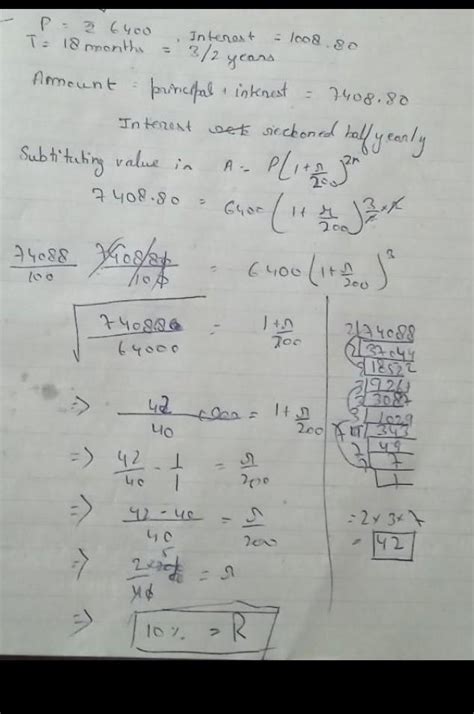 P = ₹ 6400 , Interest = 1008.80
T = 18 months = 3/2 years
Amount = principal + interest = 7408.80
Interest reckoned half yearly
Subtituting value in A = P(1+r/200)^2n
7408.80 = 6400(1+r/200)^3/2×2
74088/100 7408/80/10 = 6400(1+r/200)^3
√74088/64000 = 1+r/200
=> 42/40 = 1+r/200
=> 42/40 - 1/1 = r/200
=> 42-40/40 = r/200
=> 2×200/40 = r
=> 10% = R
2|74088
2|37044
2|18522
3|9261
3|3087
3|1029
7|343
7|49
7|7
1
= 2×3×7
= 42